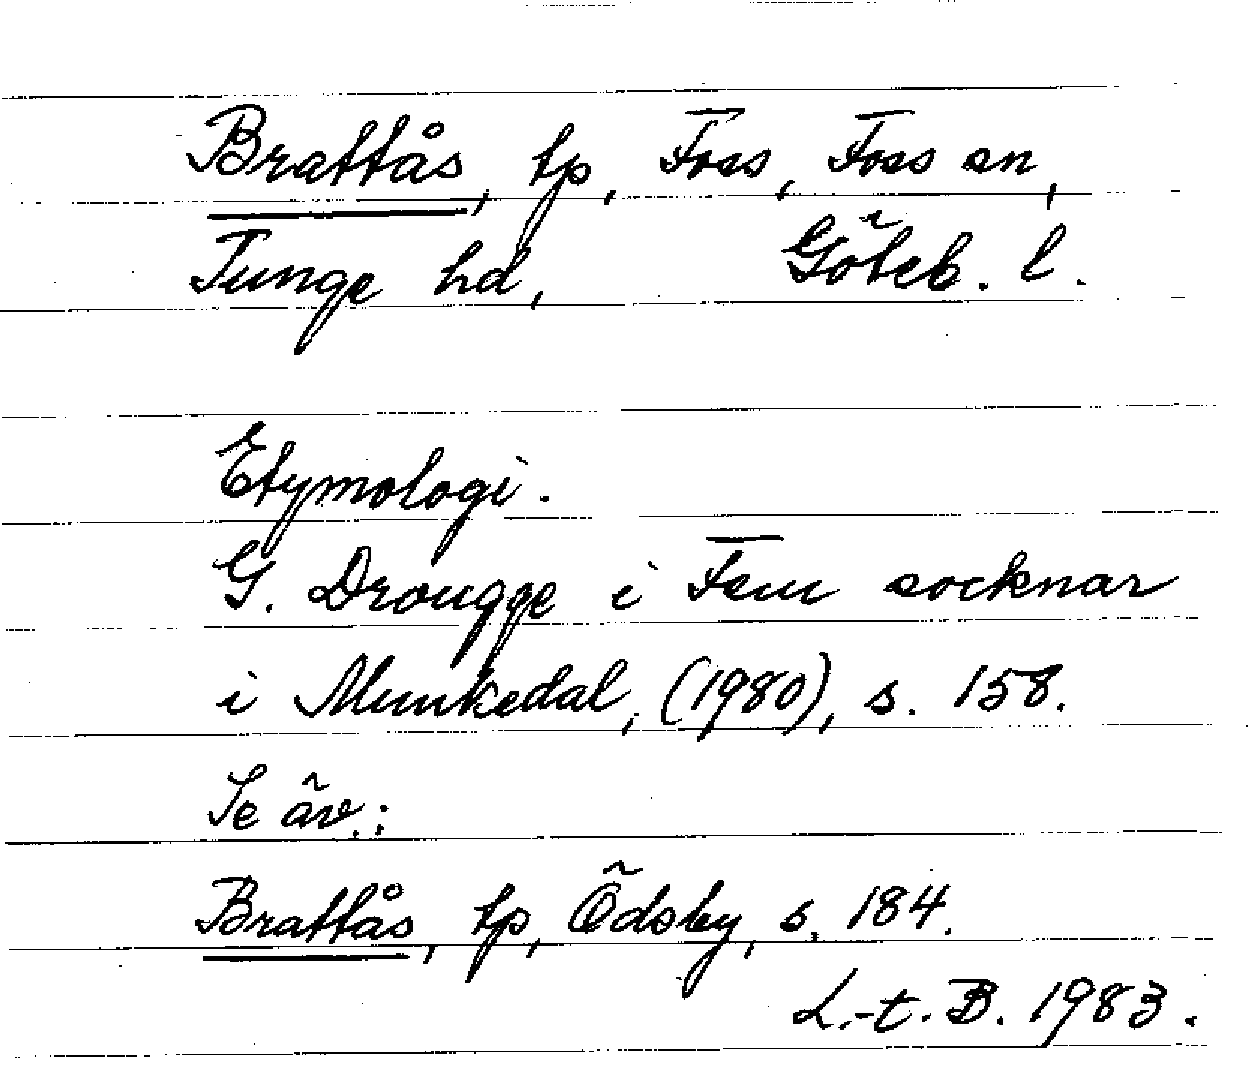 Brattås, tp, Foss, Foss sn,
Tunge hd, Göteb. l.
Etymologi.
G. Drougge i Fem socknar
i Munkedal, (1980), s. 158.
Se äv.:
Brattås, tp, Ödsby, s. 184.
L.-t. B. 1983.